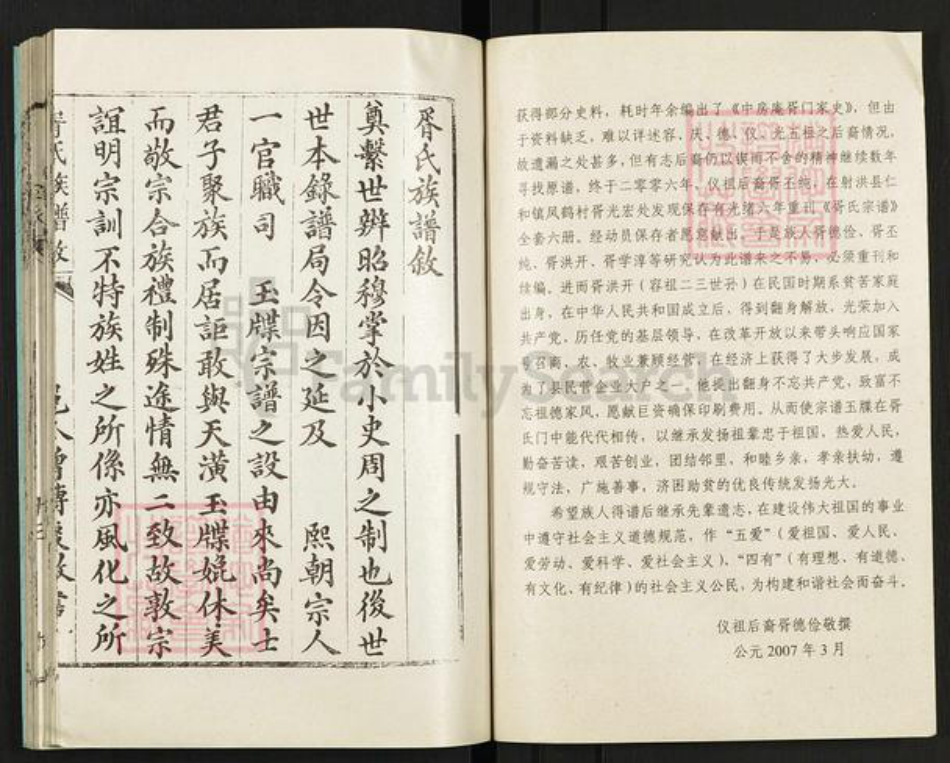 胥氏族譜敘
奠繫世辨昭穆掌於小史周之制也後世
世本錄譜局令因之延及 熙朝宗人
一官職司 玉牒宗譜之設由來尚矣士
君子聚族而居詎敢與天潢玉牒媲休美
而敬宗合族禮制殊途情無二致故敦宗
誼明宗訓不特族姓之所係亦風化之所
胥氏族譜敘
获得部分史料，耗时年余编出了《中房庵胥门家史》，但由
于资料缺乏，难以详述容、庆、德、仪、光五祖之后裔情况，
故遗漏之处甚多，但有志后裔仍以锲而不舍的精神继续数年
寻找原谱，终于二零零六年，仪祖后裔胥丕纯，在射洪县仁
和镇凤鹤村胥光宏处发现保存有光绪六年重刊《胥氏宗谱》
全套六册。经动员保存者愿意献出，于是族人胥德俭、胥丕
纯、胥洪开、胥学淳等研究认为此谱来之不易，必须重刊和
续编。进而胥洪开（容祖二三世孙）在民国时期系贫苦家庭
出身，在中华人民共和国成立后，得到翻身解放，光荣加入
共产党，历任党的基层领导，在改革开放以来带头响应国家
号召商、农、牧业兼顾经营，在经济上获得了大步发展，成
为了县民营企业大户之一，他提出翻身不忘共产党，致富不
忘祖德家风，愿献巨资确保印刷费用。从而使宗谱玉牒在胥
氏门中能代代相传，以继承发扬祖辈忠于祖国，热爱人民，
勤奋苦读，艰苦创业，团结邻里，和睦乡亲，孝亲扶幼，遵
规守法，广施善事，济困助贫的优良传统发扬光大。
希望族人得谱后继承先辈遗志，在建设伟大祖国的事业
中遵守社会主义道德规范，作“五爱”（爱祖国、爱人民、
爱劳动、爱科学、爱社会主义）、“四有”（有理想、有道德、
有文化、有纪律）的社会主义公民，为构建和谐社会而奋斗。
仪祖后裔胥德俭敬撰
公元 2007 年 3 月
FamilySearch